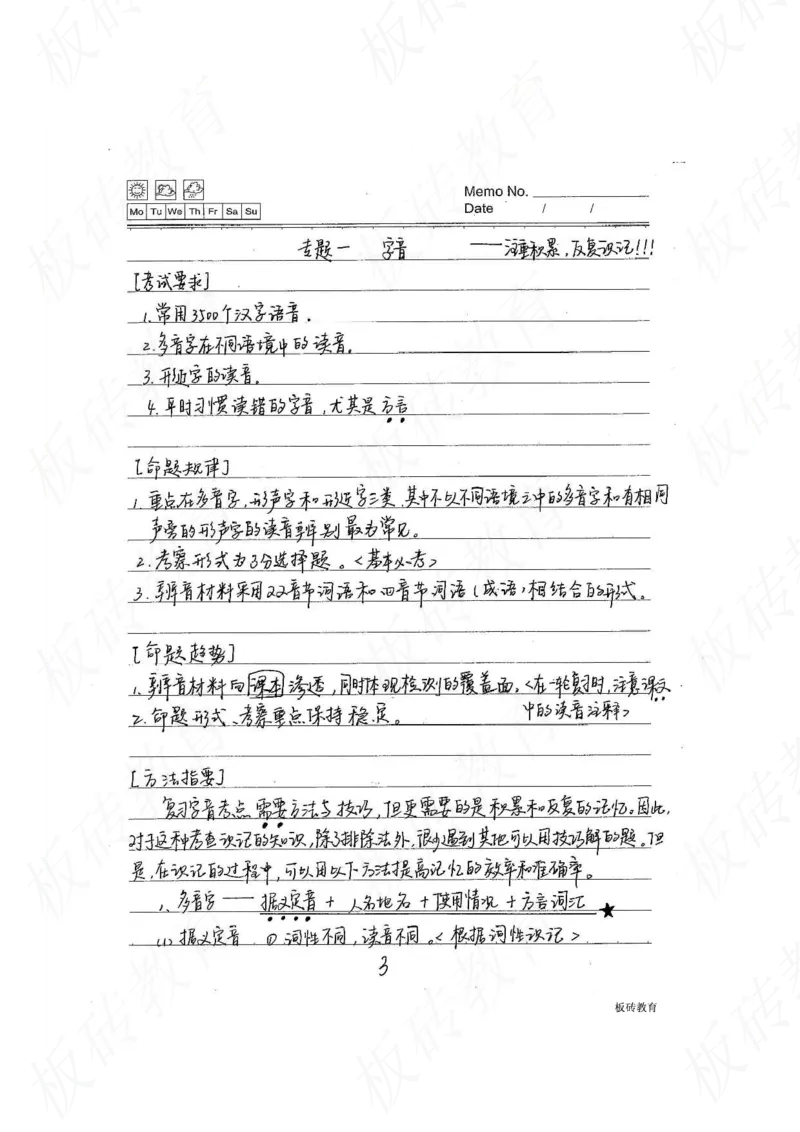 Memo No.
Mo Tu We Th Fr Sa Su
Date / /
专题一 字音 ——注重积累,反复识记!!!
[考试要求]
1.常用3500个汉字语音.
2.多音字在不同语境中的读音.
3.形近字的读音.
4.平时习惯读错的字音,尤其是方言
[命题规律]
1.重点在多音字,形声字和形近字三类.其中不以不同语境之中的多音字和有相同
声旁的形声字的读音辨别最为常见。
2.考察形式为3分选择题。<基本必考>
3.辨音材料采用双音节词语和四音节词语(成语)相结合的形式。
[命题趋势]
1.辨音材料向课本渗透,同时体现检测的覆盖面.<在一轮复习时,注意课文
中的读音注释>
2.命题形式、考察重点保持稳定。
[方法指要]
复习字音考点需要方法与技巧,但更需要的是积累和反复的记忆.因此,
对于这种考查识记的知识,除了排除法外,很少遇到其他可以用技巧解的题。但
是,在识记的过程中,可以用以下方法提高记忆的效率和准确率。
1、多音字——据义定音+人名地名+使用情况+方言词汇 ★
(1)据义定音 ①词性不同,读音不同。<根据词性识记>
3
板砖教育